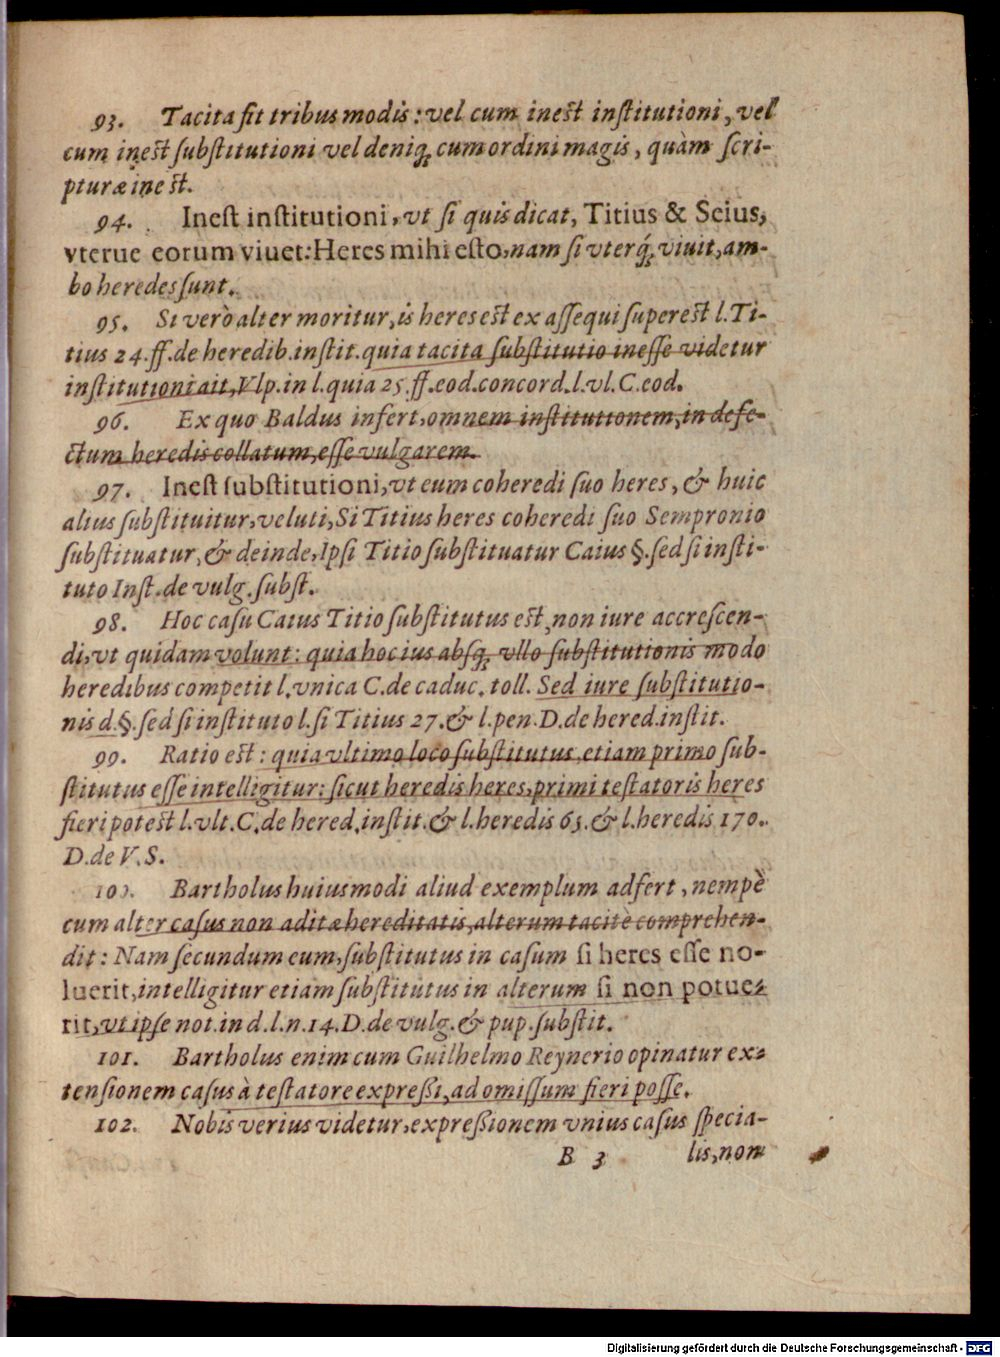 93. Tacita fit tribus modis: vel cum inest institutioni, vel
cum inest substitutioni vel deniq; cum ordini magis, quàm scri-
pturæ inest.
94. Inest institutioni, vt si quis dicat, Titius & Seius,
vterue eorum viuet: Heres mihi esto, nam si vterq́; viuit, am-
bo heredes sunt.
95. Si verò alter moritur, is heres est ex asse qui superest l. Ti-
tius 24. ff. de heredib. instit. quia tacita substitutio inesse videtur
institutioni ait, Vlp. in l. quia 25. ff. eod. concord. l. vl. C. eod.
96. Ex quo Baldus infert, omnem institutionem, in defe-
ctum heredis collatum, esse vulgarem.
97. Inest substitutioni, vt eum coheredi suo heres, & huic
alius substituitur, veluti, Si Titius heres coheredi suo Sempronio
substituatur, & deinde, Ipsi Titio substituatur Caius §. sed si insti-
tuto Inst. de vulg. subst.
98. Hoc casu Caius Titio substitutus est, non iure accrescen-
di, vt quidam volunt: quia hoc ius absq; vllo substitutionis modo
heredibus competit l. vnica C. de caduc. toll. Sed iure substitutio-
nis d. §. sed si instituto l. si Titius 27. & l. pen. D. de hered. instit.
99. Ratio est: quia vltimo loco substitutus, etiam primo sub-
stitutus esse intelligitur: sicut heredis heres, primi testatoris heres
fieri potest l. vlt. C. de hered. instit. & l. heredis 65. & l. heredis 170.
D. de V. S.
100. Bartholus huiusmodi aliud exemplum adfert, nempè
cum alter casus non aditæ hereditatis, alterum tacitè comprehen-
dit: Nam secundum eum, substitutus in casum si heres esse no-
luerit, intelligitur etiam substitutus in alterum si non potue-
rit, vt ipse not. in d. l. n. 14. D. de vulg. & pup. substit.
101. Bartholus enim cum Guilhelmo Reynerio opinatur ex-
tensionem casus à testatore expreßi, ad omissum fieri posse.
102. Nobis verius videtur, expreßionem vnius casus specia-
B 3 lis, non
Digitalisierung gefördert durch die Deutsche Forschungsgemeinschaft - DFG